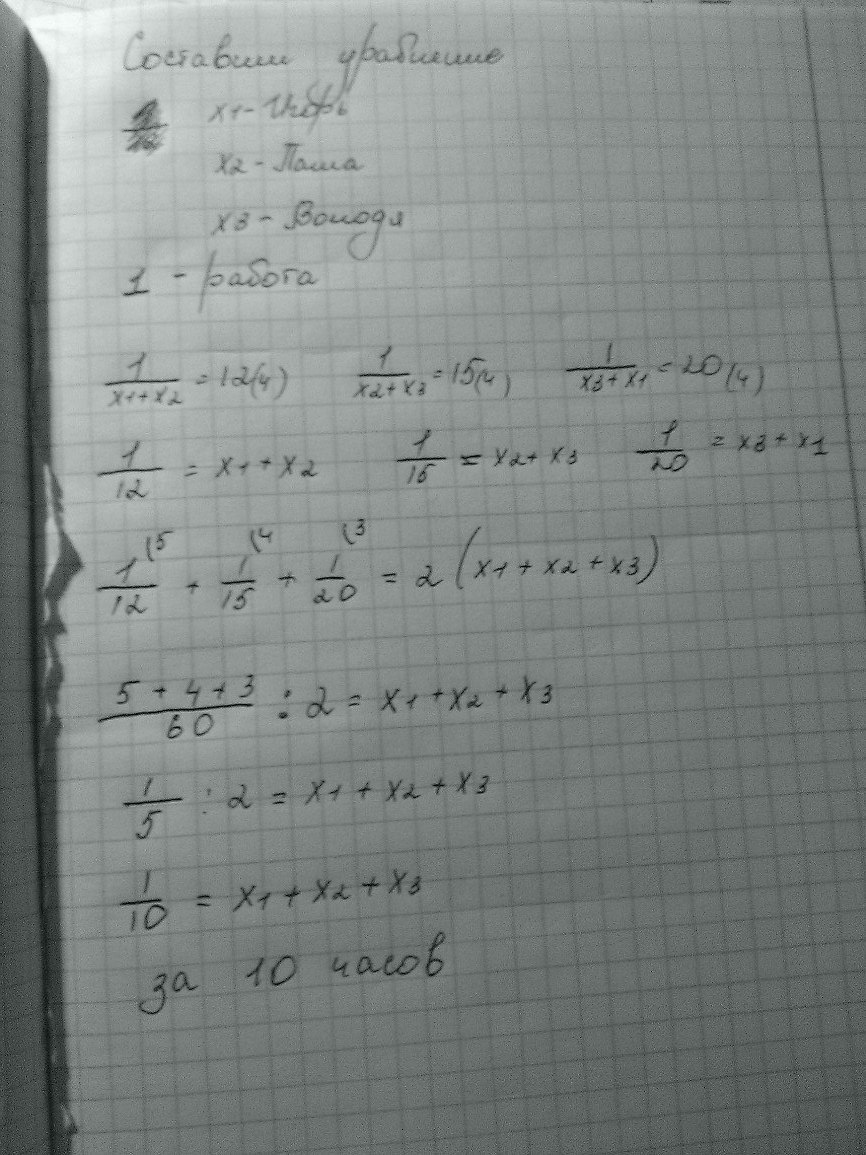 Составим уравнение
x1 - Игорь
x2 - Паша
x3 - Володя
1 - работа
1/(x1+x2) = 12(ч) 1/(x2+x3) = 15(ч) 1/(x3+x1) = 20(ч)
1/12 = x1+x2 1/15 = x2+x3 1/20 = x3+x1
1/12 (5 + 1/15 (4 + 1/20 (3 = 2(x1+x2+x3)
(5+4+3)/60 : 2 = x1+x2+x3
1/5 : 2 = x1+x2+x3
1/10 = x1+x2+x3
за 10 часов